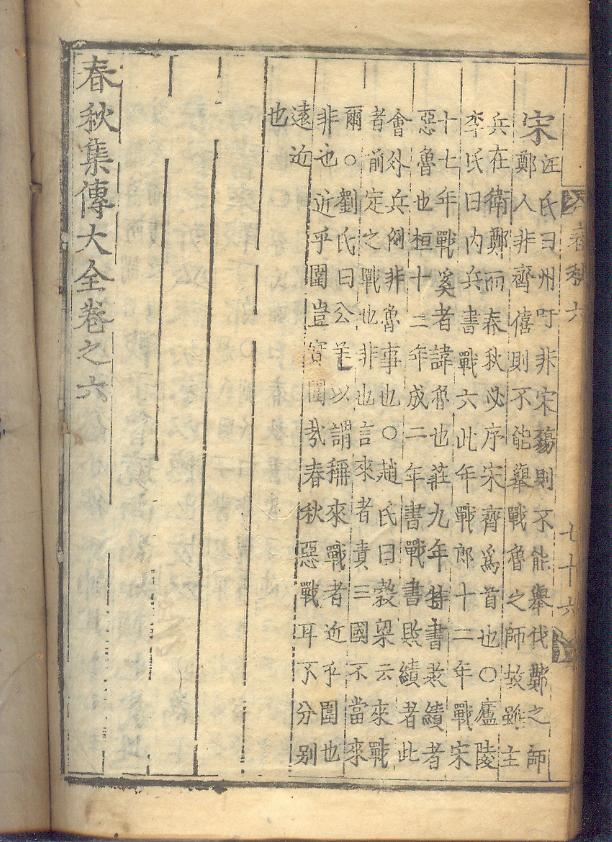 春秋六 七十六
宋
汪氏曰州吁非宋殤則不能舉伐鄭之師
鄭人非齊僖則不能舉戰魯之師故雖主
兵在衛鄭而春秋必序宋齊爲首也○廬陵
李氏曰内兵書戰六此年戰郎十二年戰宋
十七年戰奚者諱齊也莊九年特書敗績者
惡魯也桓十三年成二年書戰書敗績者此
會外兵例非魯事也○趙氏曰穀梁云來戰
者前定之戰也非也言來者責三國不當來
爾○劉氏曰公羊以謂稱來戰者近乎圍也
非也近乎圍豈實圍哉春秋惡戰耳不分别
遠近
也
春秋集傳大全卷之六